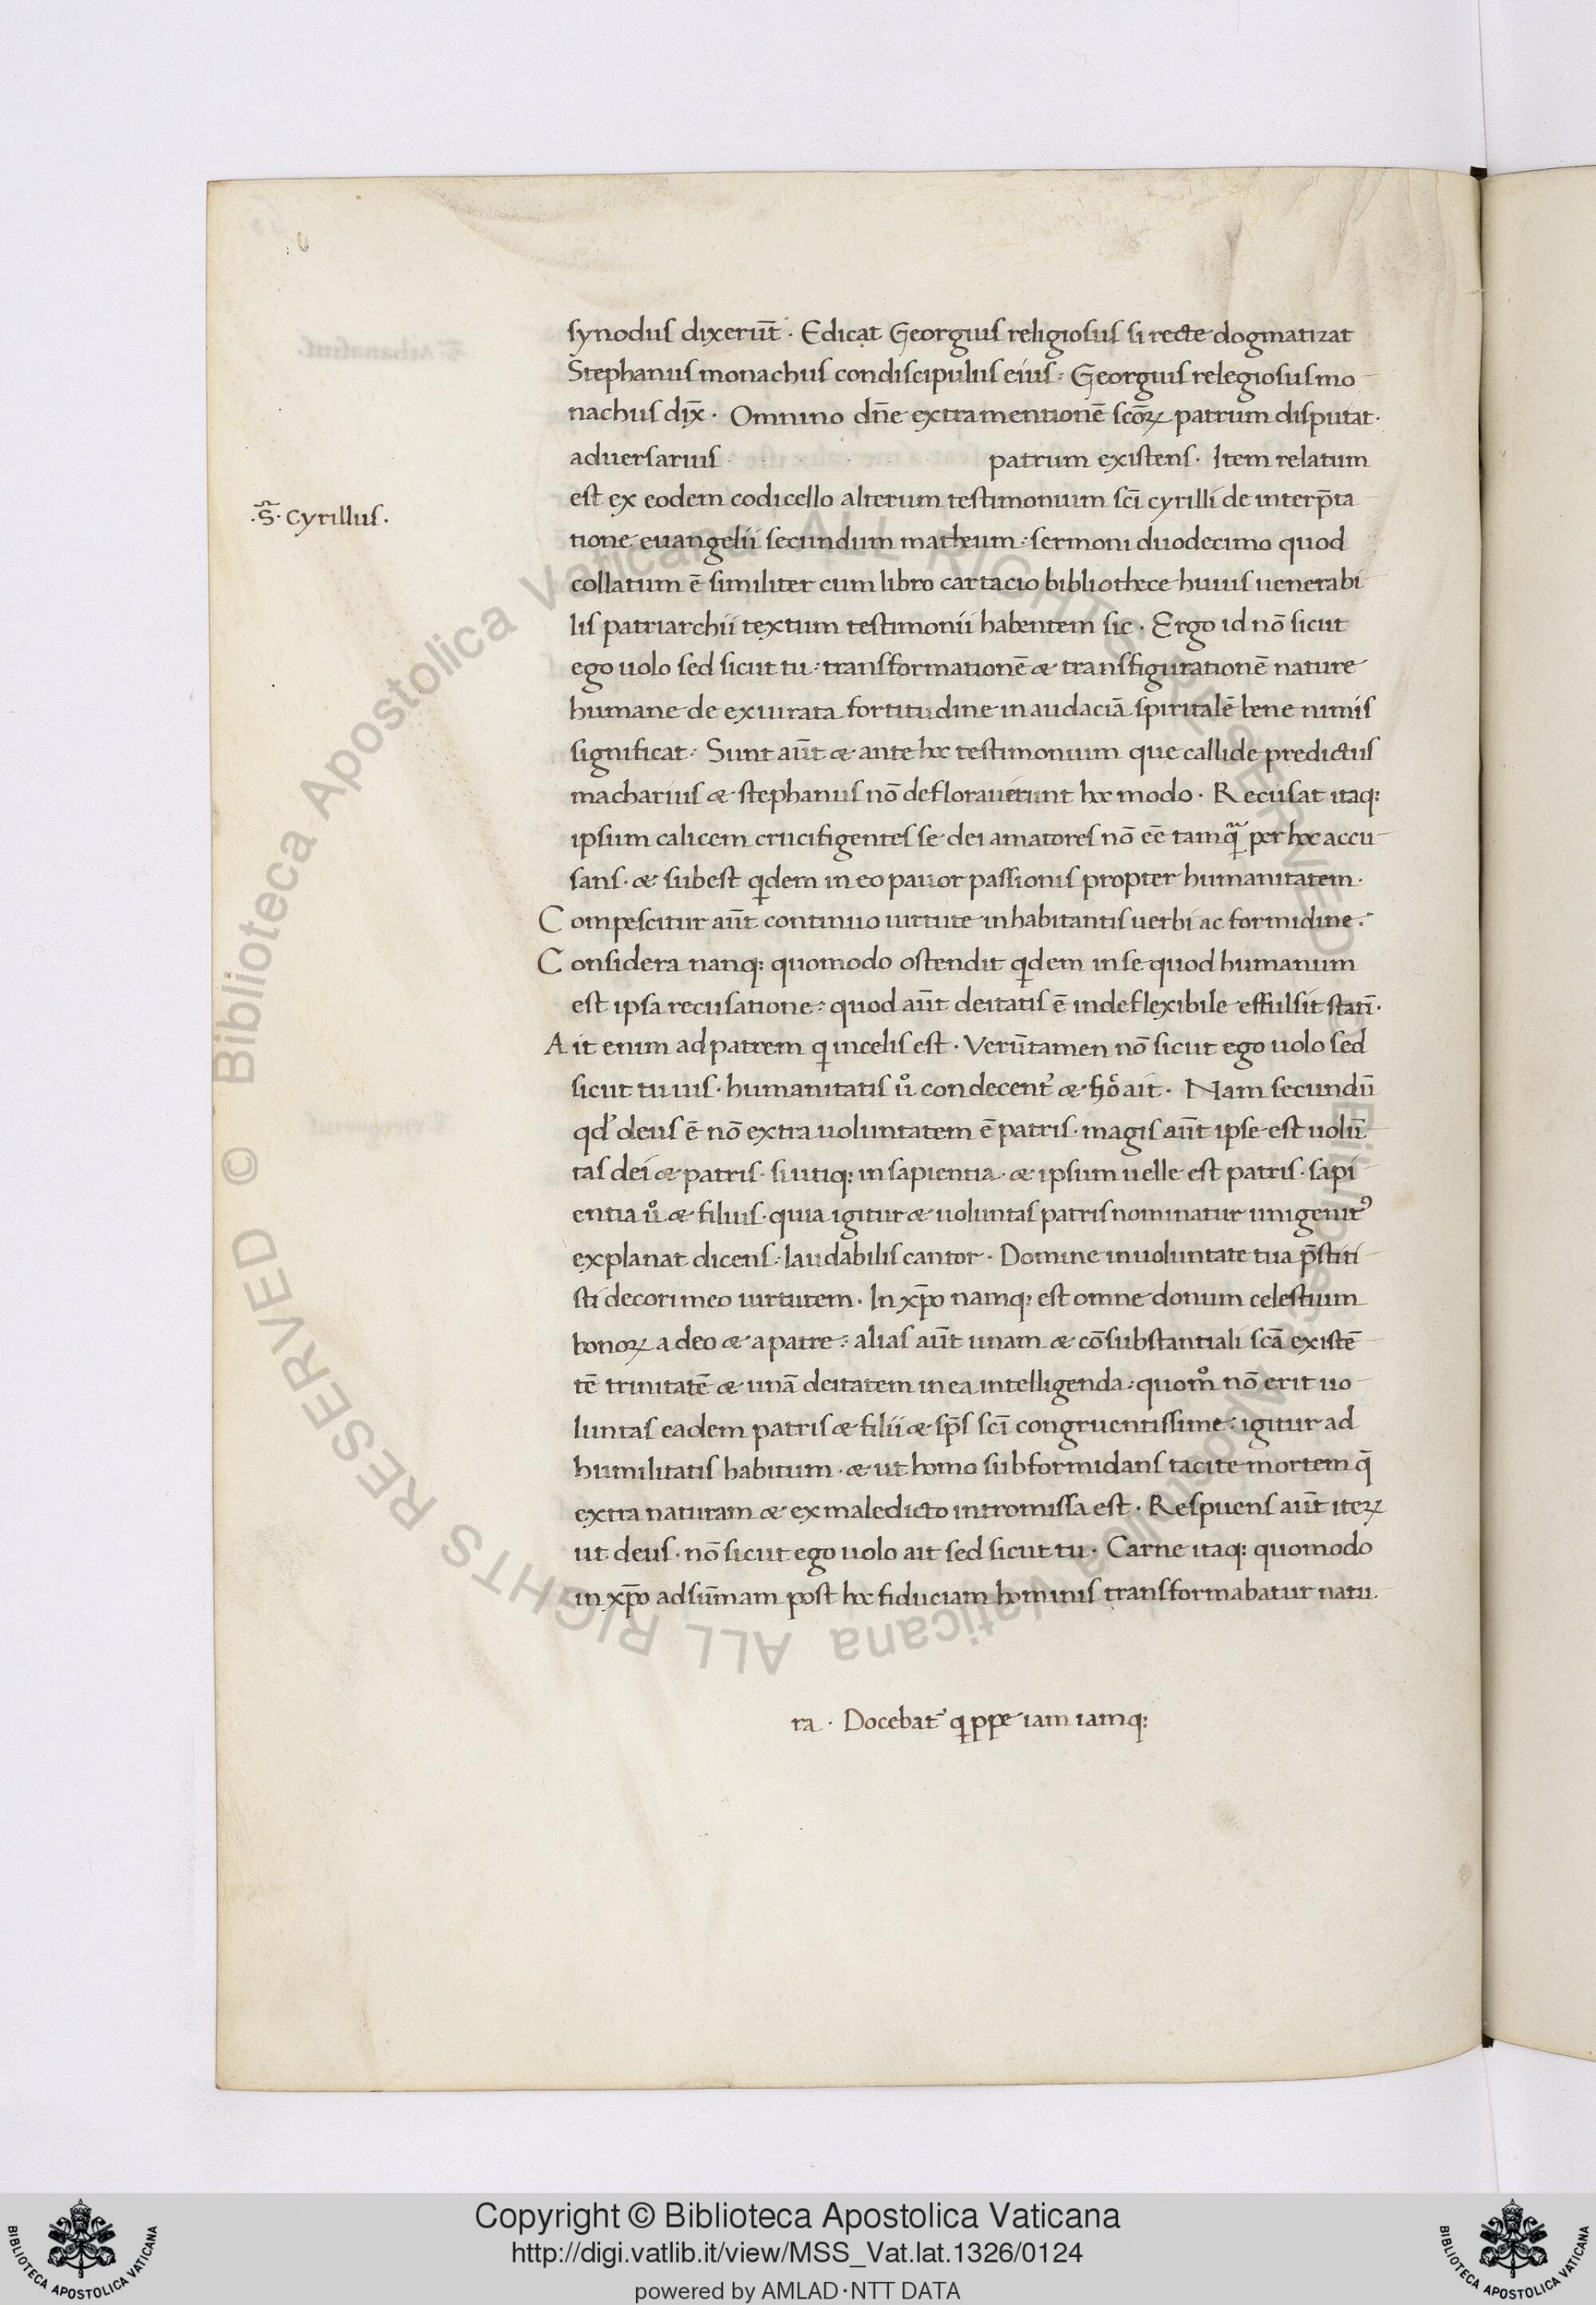 synodus dixerūt · Edicat Georgius religiosus si recte dogmatizat
Stephanus monachus condiscipulus eius : Georgius relegiosus mo
nachus dix̄ · Omnino dn̄e extra mentionē scōꝝ patrum disputat ·
aduersarius patrum existens · Item relatum
est ex eodem codicello alterum testimonium sc̄i cyrilli de interp̄ta
·S̄· Cyrillus ·
tione euangelii secundum matheum : sermoni duodecimo quod
collatum ē similiter cum libro cartacio bibliothece huius uenerabi
lis patriarchii textum testimonii habentem sic · Ergo id nō sicut
ego uolo sed sicut tu : transformationē & transfigurationē nature
humane de exuirata fortitudine in audaciā spiritalē bene nimis
significat : Sunt aūt & ante hoc testimonium que callide predictus
macharius & stephanus nō deflorauerunt hoc modo · Recusat itaq:
ipsum calicem crucifigentes se dei amatores nō eē tamqᷓ per hoc accu
sans · & subest qdem in eo pauor passionis propter humanitatem ·
Compescitur aūt continuo uirtute inhabitantis uerbi ac formidine :
Considera nanq: quomodo ostendit qdem in se quod humanum
est ipsa recusatione : quod aūt deitatis ē indeflexibile effulsit statī ·
Ait enim ad patrem q in celis est · Verūtamen nō sicut ego uolo sed
sicut tu uis · humanitatis uͦ condecent᾽ & ħͦ ait · Nam secundū
qd᾽ deus ē nō extra uoluntatem ē patris · magis aūt ipse est uolū
tas dei & patris · si utiq: in sapientia · & ipsum uelle est patris · sapi
entia uͦ & filius · quia igitur & uoluntas patris nominatur unigenitꝰ
explanat dicens : laudabilis cantor · Domine in uoluntate tua p̄stiti
sti decori meo uirtutem · In xp̄o namq: est omne donum celestium
bonoꝝ a deo & a patre : alias aūt unam & cōsubstantiali scā existē
tē trinitatē & unā deitatem in ea intelligenda : quomͦ nō erit uo
luntas eadem patris & filii & sp̄s sc̄i congruentissime : igitur ad
humilitatis habitum · & ut homo subformidans tacite mortem q̄
extra naturam & ex maledicto intromissa est · Respuens aūt iteꝝ
ut deus · nō sicut ego uolo ait sed sicut tu · Carne itaq: quomodo
in xp̄o ad sūmam post hoc fiduciam hominis transformabatur natu
ra · Docebat᾽ qppe iam iamq:
© Biblioteca Apostolica Vaticana ALL RIGHTS RESERVED © Biblioteca Apostolica Vaticana ALL RIGHTS RESERVED
Copyright © Biblioteca Apostolica Vaticana
http://digi.vatlib.it/view/MSS_Vat.lat.1326/0124
powered by AMLAD·NTT DATA
BIBLIOTECA APOSTOLICA VATICANA
BIBLIOTECA APOSTOLICA VATICANA